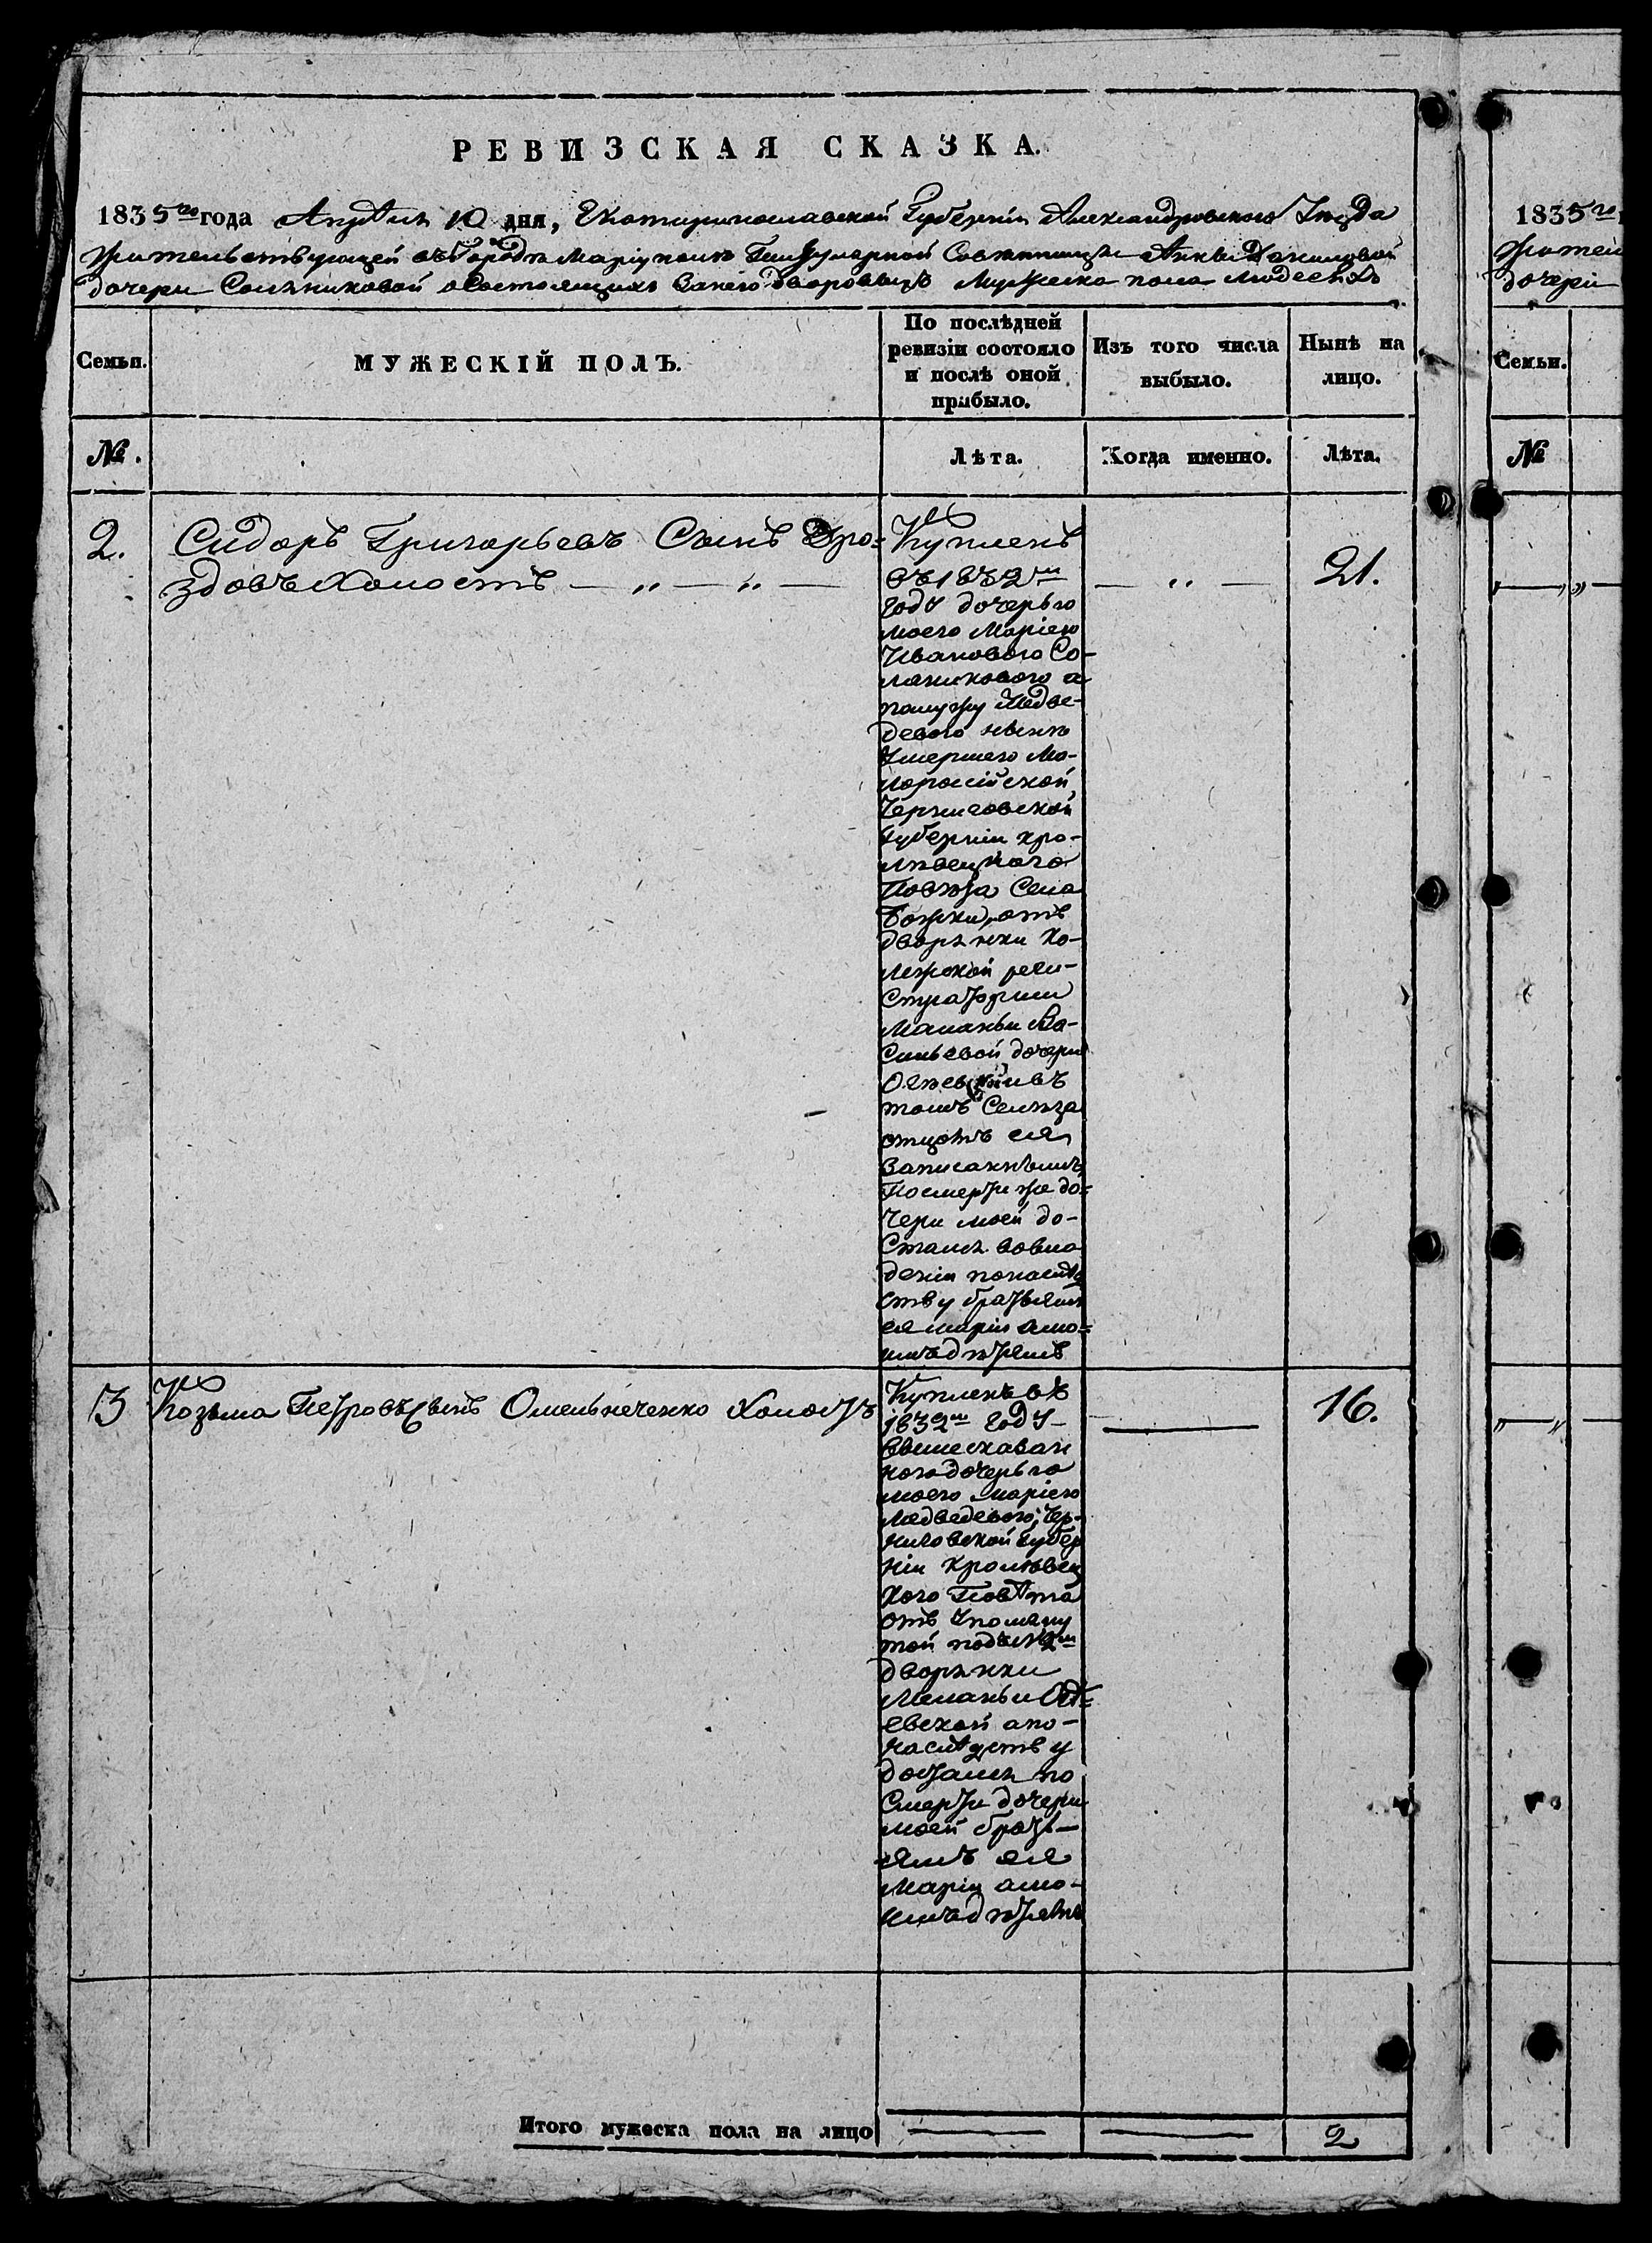 РЕВИЗСКАЯ СКАЗКА.
1835го года Апрѣля 10 дня, Екатеринославской Губерніи Александровского Уѣзда
жительствующей въ Городѣ Маріуполѣ Титулярной Совѣтницы Анны Даниловой
дочери Соляниковой о Состоящихъ Занею дворовыхъ Мужеска пола людѣхъ
Семьи.
МУЖЕСКІЙ ПОЛЪ.
По послѣдней
ревизіи состояло
и послѣ оной
прибыло.
Изъ того числа
выбыло.
Нынѣ на
лицо.
№.
Лѣта.
Когда именно.
Лѣта.
2.
Сидоръ Григорьевъ Сынъ Дро=
здовъ Холостъ — „ — „ —
Купленъ
въ 1832м
Году дочерью
моею Маріею
Ивановою Со-
ляниковою а
помужу Медве-
девою нынѣ
Умершею Ма-
лоросійской
Черниговской
Губерніи кро-
левецкого
Повѣта Села
отъ
дворянки ко-
лежской реги-
страторши
Маланьи Ва-
сильевой дочери
въ
томъ Селѣ за
отцомъ ея
Записаннымъ
Посмерти же до=
чери моей до-
стался во вла
деніи понаслѣд
ству братьямъ
ея Маріи а мо=
имъ дѣтямъ
— „ —
21.
3
Козьма Петровъ Сынъ Омельнеченко Холостъ
Купленъ въ
1832м Году
вышесказан
ною дочерью
моею Маріею
Медведевою, Чер-
ниговской Губер
ніи Кролевец
кого Повѣта
отъ Упомяну
той подъ № 2м
дворянки
Меланьи
евской а по-
наслѣдству
достался по
Смерти дочери
моей брать-
ямъ ея
Маріи а мо-
имъ дѣтямъ
16.
Итого мужеска пола на лицо
2
1835го
жител
дочери
Семьи.
№